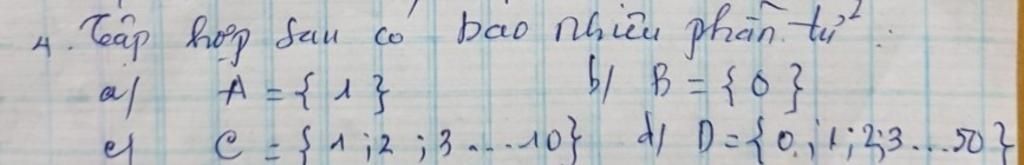 4. Tập hợp sau có bao nhiêu phần tử?
a/ A = { 1 } b/ B = { 0 }
c/ C = { 1 ; 2 ; 3 ... 10} d/ D = { 0 ; 1 ; 2 ; 3 ... 50 }